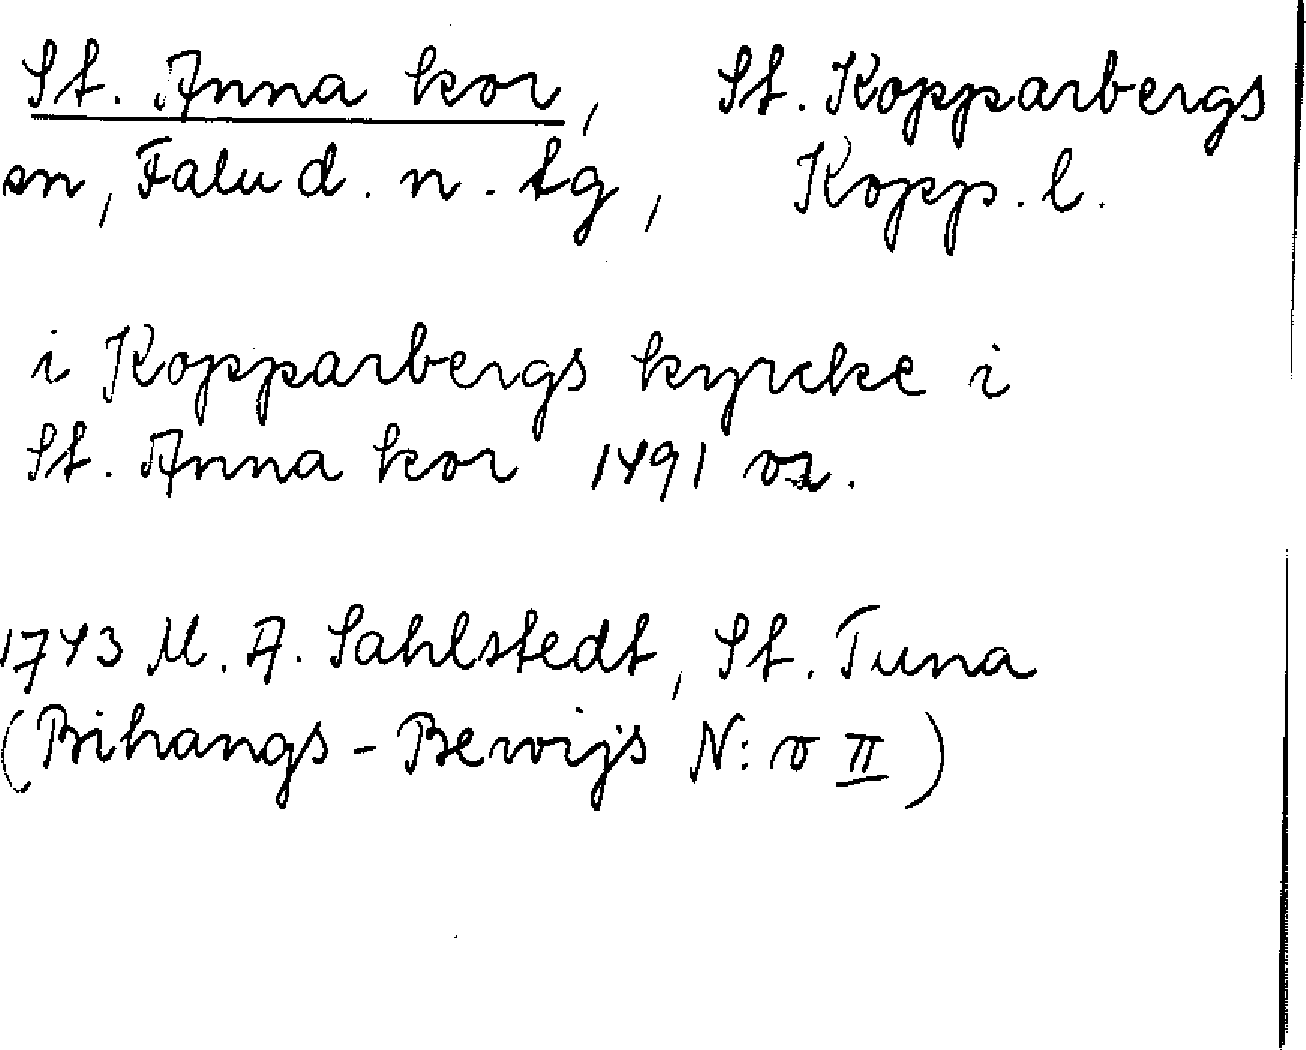 St. Anna kor, St. Kopparbergs
sn, Falu d. n. tg, Kopp. l.
i Kopparbergs kyrcke i
St. Anna kor 1491 or.
1743 M. A. Sahlstedt, St. Tuna
(Bihangs-Bewijs N:o II)